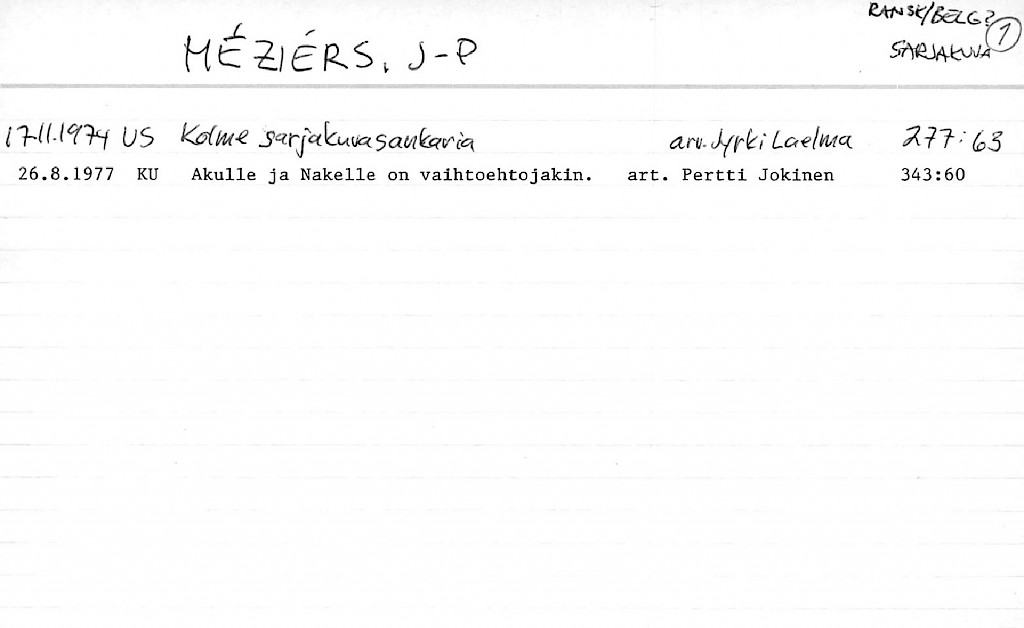 RANSK/BELG?
MÉZIÉRS, J-P
SARJAKUVA 1
17.11.1974 US Kolme sarjakuvasankaria arv. Jyrki Laelma 277:63
26.8.1977 KU Akulle ja Nakelle on vaihtoehtojakin. art. Pertti Jokinen 343:60